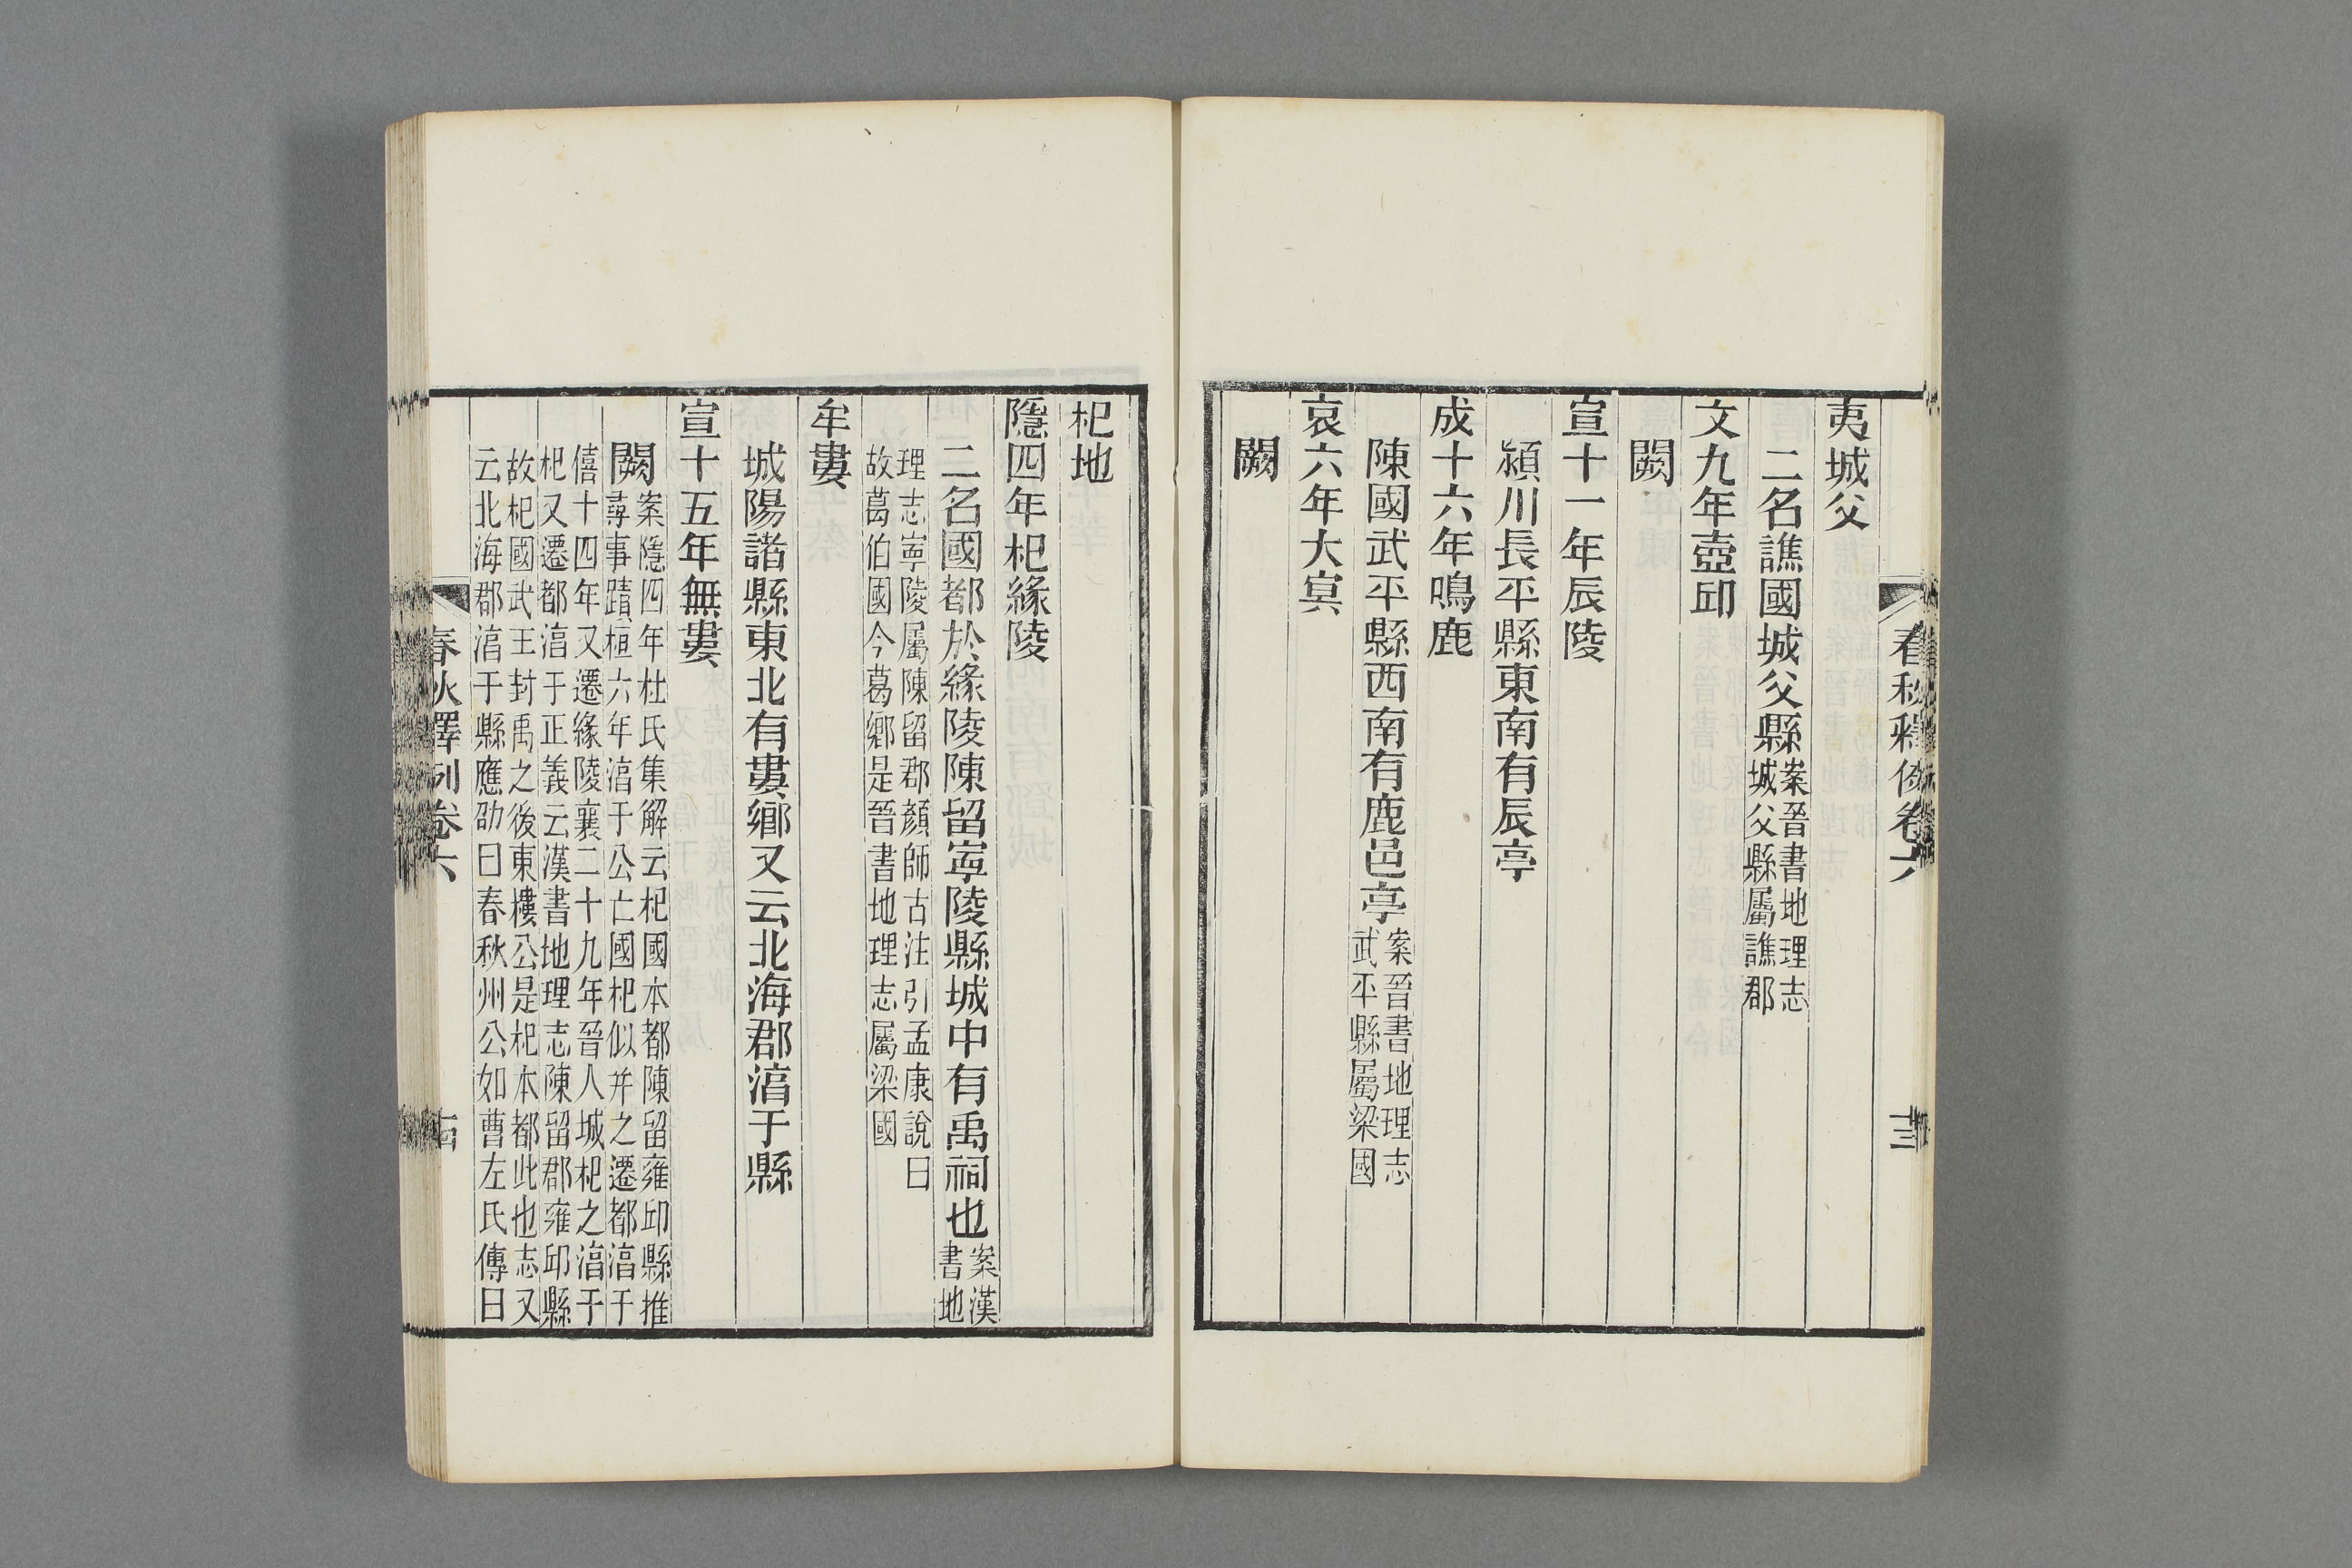 春秋釋例卷六
十三
夷城父
二名譙國城父縣案晉書地理志
城父縣屬譙郡
文九年壺邱
闕
宣十一年辰陵
潁川長平縣東南有辰亭
成十六年鳴鹿
陳國武平縣西南有鹿邑亭案晉書地理志
武平縣屬梁國
哀六年大冥
闕
杞地
隱四年杞緣陵
二名國都於緣陵陳留寕陵縣城中有禹祠也案漢
書地
理志寕陵屬陳留郡顏師古注引孟康說曰
故葛伯國今葛鄉是晉書地理志屬梁國
牟婁
城陽諸縣東北有婁鄉又云北海郡淯于縣
宣十五年無婁
闕案隱四年杜氏集解云杞國本都陳留雍邱縣推
尋事蹟桓六年淯于公亡國杞似并之遷都淯于
僖十四年又遷緣陵襄二十九年晉人城杞之淯于
杞又遷都淯于正義云漢書地理志陳留郡雍邱縣
故杞國武王封禹之後東樓公是杞本都此也志又
云北海郡淯于縣應劭曰春秋州公如曹左氏傳曰
春秋釋例卷六
十四